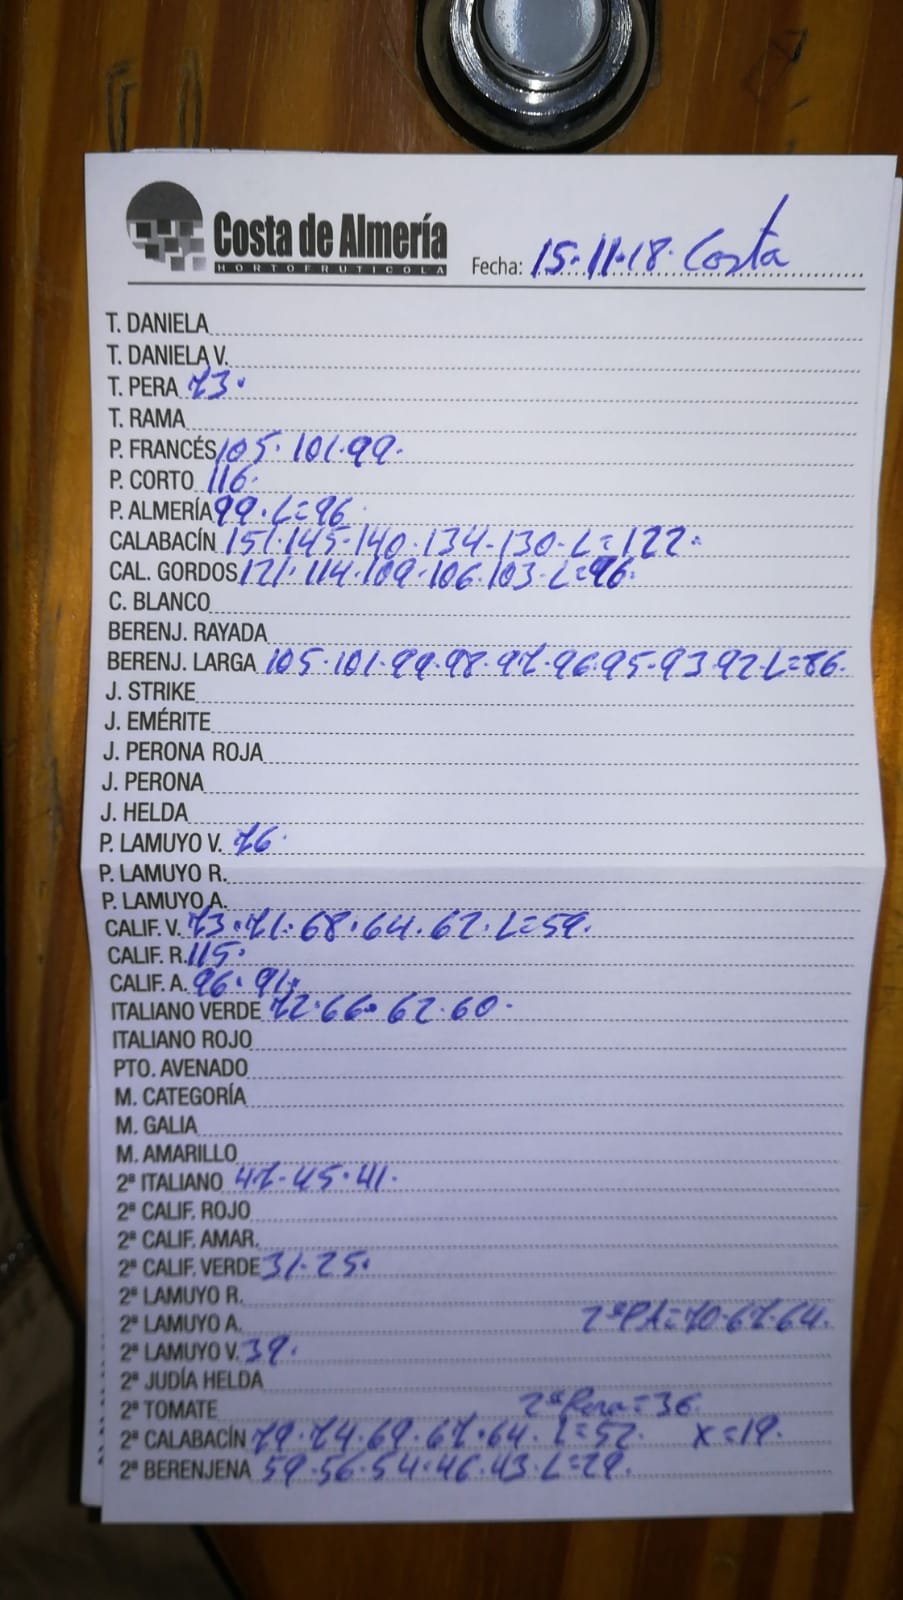 Costa de Almería
HORTOFRUTICOLA
Fecha: 15·11·18· Costa
T. DANIELA
T. DANIELA V.
T. PERA 73·
T. RAMA
P. FRANCÉS 105· 101·99·
P. CORTO 116·
P. ALMERÍA 99·L=96·
CALABACÍN 151·145-140·134-130-L=122·
CAL. GORDOS 121·114·109·106·103·L=96·
C. BLANCO
BERENJ. RAYADA
BERENJ. LARGA 105·101·99·98·97·96·95·93·92·L=86·
J. STRIKE
J. EMÉRITE
J. PERONA ROJA
J. PERONA
J. HELDA
P. LAMUYO V. 76·
P. LAMUYO R.
P. LAMUYO A.
CALIF. V. 73·71·68·64·62·L=59·
CALIF. R. 115·
CALIF. A. 96·91·
ITALIANO VERDE 72·66·62·60·
ITALIANO ROJO
PTO. AVENADO
M. CATEGORÍA
M. GALIA
M. AMARILLO
2ª ITALIANO 47-45·41·
2ª CALIF. ROJO
2ª CALIF. AMAR.
2ª CALIF. VERDE 31·25·
2ª LAMUYO R.
2ª LAMUYO A. 2ªPA=70·67·64·
2ª LAMUYO V. 39·
2ª JUDÍA HELDA
2ª TOMATE 2ª Pera=36·
2ª CALABACÍN 79·74·69·67·64·L=52· X=19·
2ª BERENJENA 59·56·54·46·43·L=29·